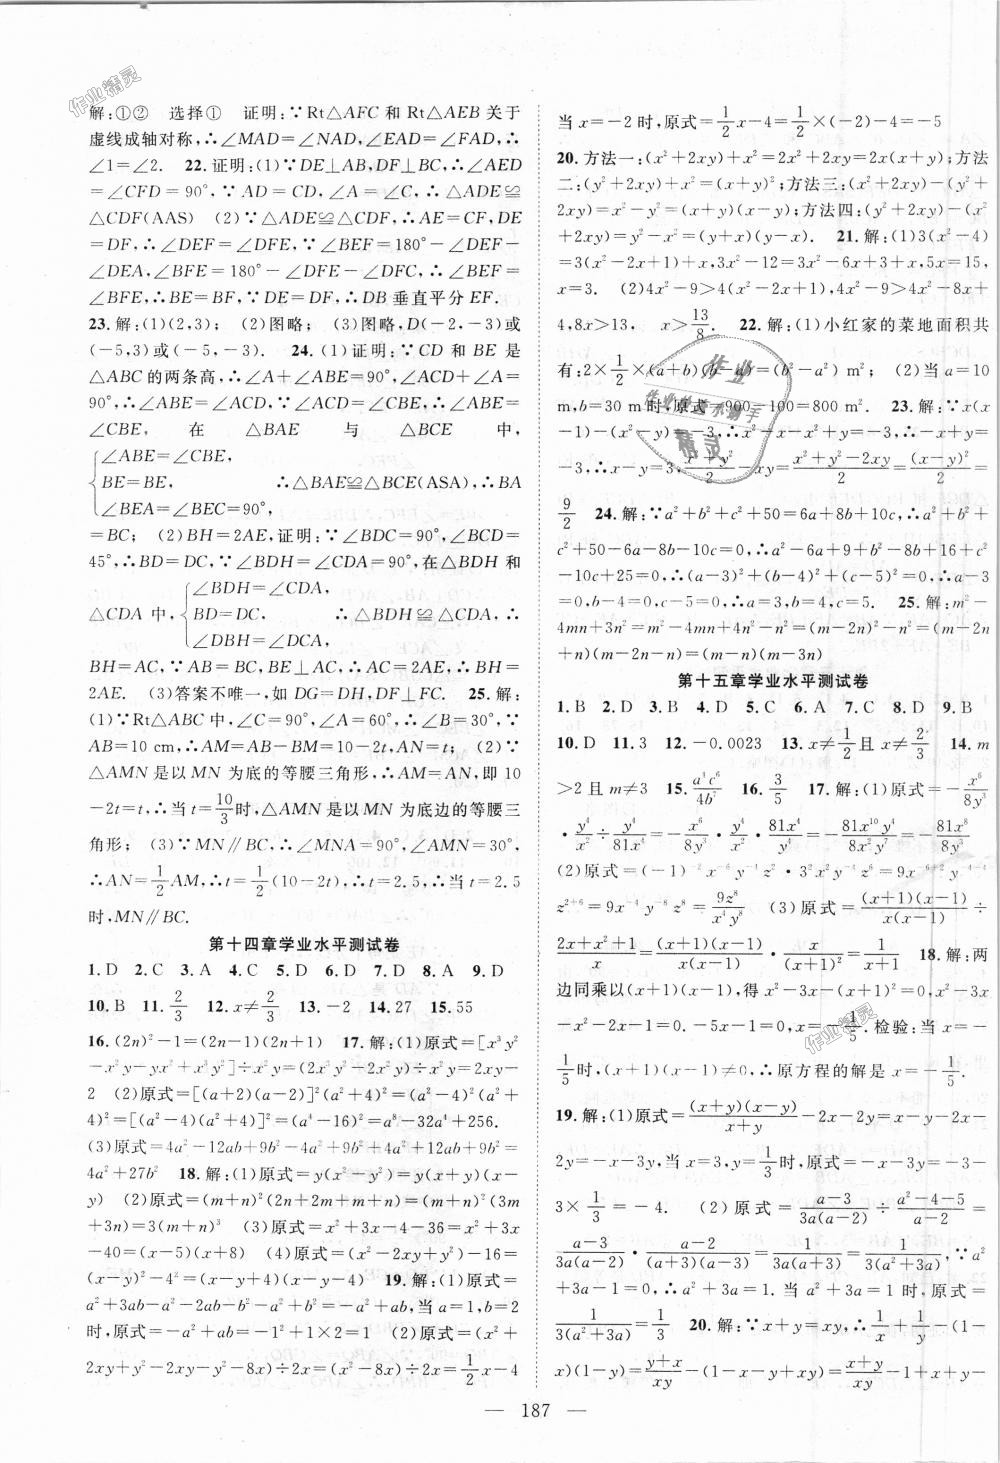 解:①② 选择① 证明:∵Rt△AFC和Rt△AEB关于
虚线成轴对称,∴∠MAD=∠NAD,∠EAD=∠FAD,∴
∠1=∠2. 22.证明:(1)∵DE⊥AB,DF⊥BC,∴∠AED
=∠CFD=90°,∵AD=CD,∠A=∠C,∴△ADE≌
△CDF(AAS) (2)∵△ADE≌△CDF,∴AE=CF,DE
=DF,∴∠DEF=∠DFE,∵∠BEF=180°-∠DEF-
∠DEA,∠BFE=180°-∠DFE-∠DFC,∴∠BEF=
∠BFE,∴BE=BF,∵DE=DF,∴DB垂直平分EF.
23.解:(1)(2,3); (2)图略; (3)图略,D(-2,-3)或
(-5,3)或(-5,-3). 24.(1)证明:∵CD和BE是
△ABC的两条高,∴∠A+∠ABE=90°,∠ACD+∠A=
90°,∴∠ABE=∠ACD,∵∠ACD=∠CBE,∴∠ABE=
∠CBE,在△BAE与△BCE中,
{∠ABE=∠CBE,
BE=BE, ∴△BAE≌△BCE(ASA),∴BA
∠BEA=∠BEC=90°,
=BC; (2)BH=2AE,证明:∵∠BDC=90°,∠BCD=
45°,∴BD=DC,∵∠BDH=∠CDA=90°,在△BDH和
{∠BDH=∠CDA,
△CDA中, BD=DC, ∴△BDH≌△CDA,∴
∠DBH=∠DCA,
BH=AC,∵AB=BC,BE⊥AC,∴AC=2AE,∴BH=
2AE. (3)答案不唯一,如DG=DH,DF⊥FC. 25.解:
(1)∵Rt△ABC中,∠C=90°,∠A=60°,∴∠B=30°,∵
AB=10 cm,∴AM=AB-BM=10-2t,AN=t; (2)∵
△AMN是以MN为底的等腰三角形,∴AM=AN,即10
-2t=t,∴当t=10/3时,△AMN是以MN为底边的等腰三
角形; (3)∵MN∥BC,∴∠MNA=90°,∠AMN=30°,
∴AN=1/2AM,∴t=1/2(10-2t),∴t=2.5,∴当t=2.5
时,MN∥BC.
第十四章学业水平测试卷
1.D 2.C 3.A 4.C 5.D 6.D 7.D 8.A 9.D
10.B 11.2/3 12.x≠2/3 13.-2 14.27 15.55
16.(2n)²-1=(2n-1)(2n+1) 17.解:(1)原式=[x³y²
-x²y-x²y+x³y²]÷x²y=(2x³y²-2x²y)÷x²y=2xy-
2 (2)原式=[(a+2)(a-2)]²(a²+4)²=(a²-4)²(a²+
4)²=[(a²-4)(a²+4)]²=(a⁴-16)²=a⁸-32a⁴+256.
(3)原式=4a²-12ab+9b²-4a²+4a²+12ab+9b²=
4a²+27b² 18.解:(1)原式=y(x²-y²)=y(x+y)(x-
y) (2)原式=(m+n)²(2n+2m+m+n)=(m+n)²(3m
+3n)=3(m+n)³ (3)原式=x²+3x-4-36=x²+3x
-40=(x-5)(x+8) (4)原式=(x²-2xy+y²)-16=
(x-y)²-4²=(x-y+4)(x-y-4) 19.解:(1)原式=
a²+3ab-a²-2ab-b²-a²+b²=-a²+ab,当a=1,b=2
时,原式=-a²+ab=-1²+1×2=1 (2)原式=(x²+
2xy+y²-2xy-y²-8x)÷2x=(x²-8x)÷2x=1/2x-4
当x=-2时,原式=1/2x-4=1/2×(-2)-4=-5
20.方法一:(x²+2xy)+x²=2x²+2xy=2x(x+y);方法
二:(y²+2xy)+x²=(x+y)²;方法三:(x²+2xy)-(y²+
2xy)=x²-y²=(x+y)(x-y);方法四:(y²+2xy)-(x²
+2xy)=y²-x²=(y+x)(y-x). 21.解:(1)3(x²-4)
=3(x²-2x+1)+x,3x²-12=3x²-6x+3+x,5x=15,
x=3. (2)4x²-9>4(x²-2x+1),4x²-9>4x²-8x+
4,8x>13, x>13/8. 22.解:(1)小红家的菜地面积共
有:2×1/2×(a+b)(b-a)=(b²-a²) m²; (2)当a=10
m,b=30 m时,原式=900-100=800 m². 23.解:∵x(x
-1)-(x²-y)=-3,∴x²-x-x²+y=-3,∴-x+y=
-3,∴x-y=3,(x²+y²)/2-xy=(x²+y²-2xy)/2=(x-y)²/2=
9/2 24.解:∵a²+b²+c²+50=6a+8b+10c,∴a²+b²+
c²+50-6a-8b-10c=0,∴a²-6a+9+b²-8b+16+c²
-10c+25=0,∴(a-3)²+(b-4)²+(c-5)²=0,∴a-3
=0,b-4=0,c-5=0,∴a=3,b=4,c=5 25.解:m²-
4mn+3n²=m²-4mn+4n²-n²=(m-2n)²-n²=(m-2n
+n)(m-2n-n)=(m-n)(m-3n)
第十五章学业水平测试卷
1.B 2.D 3.B 4.D 5.C 6.A 7.C 8.D 9.B
10.D 11.3 12.-0.0023 13.x≠1/2且x≠2/3 14.m
>2且m≠3 15.a⁴c⁶/4b⁷ 16.3/5 17.解:(1)原式=-x⁶/8y³
·y⁴/x²÷y⁴/81x⁴=-x⁶/8y³·y⁴/x²·81x⁴/y⁴=-81x¹⁰y⁴/8x²y⁷=-81x⁸/8y³
(2)原式=(-1)⁻²x⁻⁶y⁻⁴z²·3²x²y⁻⁴z⁶=9x⁻⁶⁺²y⁻⁴⁻⁴
z²⁺⁶=9x⁻⁴y⁻⁸z⁸=9z⁸/x⁴y⁸ (3)原式=(x+1)(x-1)/x(x-1)÷
(2x+x²+1)/x=(x+1)(x-1)/x(x-1)·x/(x+1)²=1/(x+1) 18.解:两
边同乘以(x+1)(x-1),得x²-3x-(x²-1)=0,x²-3x
-x²-2x-1=0.-5x-1=0,x=-1/5.检验:当x=-
1/5时,(x+1)(x-1)≠0,∴原方程的解是x=-1/5.
19.解:(1)原式=(x+y)(x-y)/(x+y)-2x-2y=x-y-2x-
2y=-x-3y,当x=3,y=1/3时,原式=-x-3y=-3-
3×1/3=-4. (2)原式=(a-3)/3a(a-2)÷(a²-4-5)/(a-2)=
(a-3)/3a(a-2)·(a-2)/(a+3)(a-3)=1/3a(a+3)=1/3(a²+3a),∵a²
+3a-1=0,∴a²+3a=1.当a²+3a=1时,原式=
1/3(a²+3a)=1/3 20.解:∵x+y=xy,∴1/x+1/y-(1-
x)(1-y)=(y+x)/xy-(1-x-y+xy)=(x+y)/xy-1+x+y-
187
作业精灵